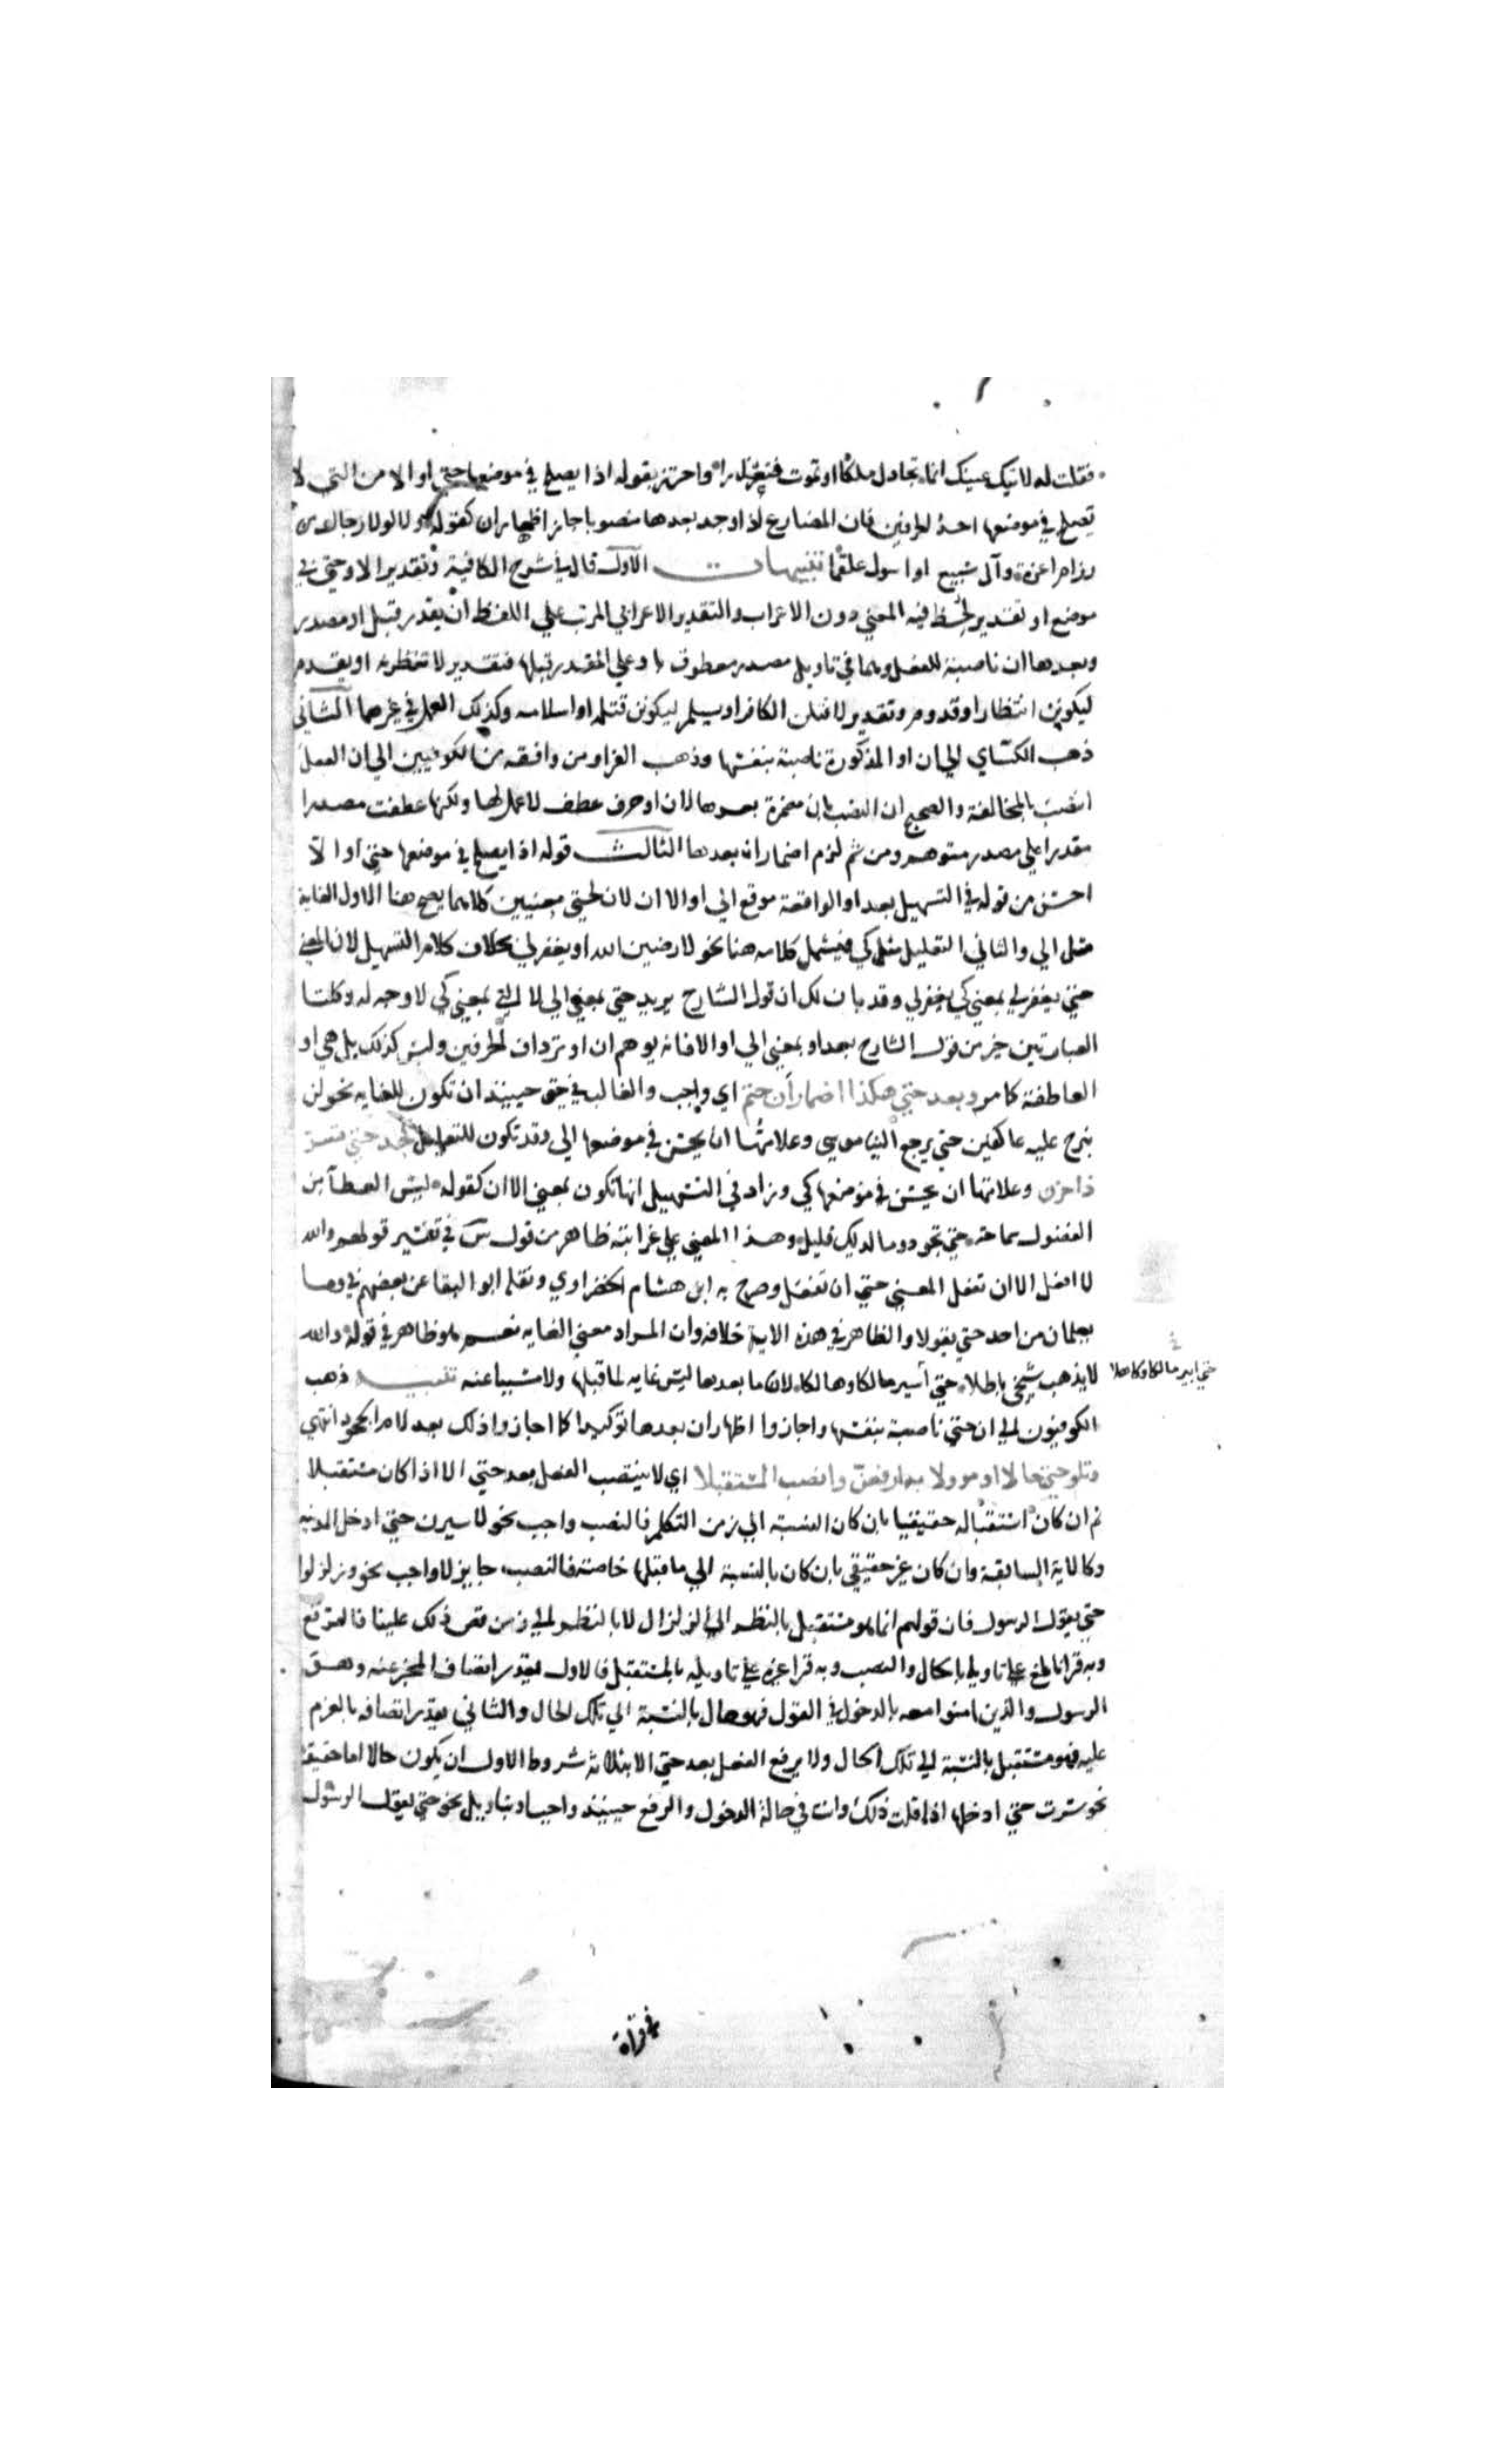 فقلت له لا تبك عينك انما تحاول ملكا او تموت فتعذرا واحترز بقوله اذا يصلح في موضعها حتي او الا من التي لا
تصلح في موضعها احد الحرفين فان المضارع اذا وجد بعدها منصوبا جاز اظهار ان كقوله ولولا رجال من
رزام اعزة وآل سبيع او اسوك علقما تنبيهات الاول قال في شرح الكافية وتقدير الا وحتي في
موضع او تقدير لحظ فيه المعني دون الاعراب والتقدير الاعرابي المرتب علي اللفظ ان يقدر قبل او مصدر
وبعدها ان ناصبة للفعل وهما في تاويل مصدر معطوف باو علي المقدر قبلها فتقدير لانتظرنه او يقدم
ليكونن انتظار او قدوم وتقدير لاقتلن الكافر او يسلم ليكونن قتله او اسلامه وكذلك العمل في غيرهما الثاني
ذهب الكساي الي ان او المذكورة ناصبة بنفسها وذهب الفرا ومن وافقه من الكوفيين الي ان الفعل
انتصب بالمخالفة والصحيح ان النصب بان مضمرة بعدها لان او حرف عطف لا عمل لها ولكنها عطفت مصدرا
مقدرا علي مصدر متوهم ومن ثم لزم اضمار ان بعدها الثالث قوله اذا يصلح في موضعها حتي او الا
احسن من قوله في التسهيل بعد او الواقعة موقع الي او الا ان لان لحتي معنيين كلاهما يصح هنا الاول الغاية
مثل الي والثاني التعليل مثل كي فيشمل كلامه هنا نحو لارضين الله او يغفر لي بخلاف كلام التسهيل لان المعني
حتي يغفر لي بمعني كي يغفر لي وقد بان لك ان قول الشارح يريد حتي بمعني الي لا التي بمعني كي لا وجه له وكلتا
العبارتين خير من قول الشارح بعد او بمعني الي او الا فانه يوهم ان او ترادف الحرفين وليس كذلك بل هي او
العاطفة كما مر وبعد حتي هكذا اضمار ان حتم اي واجب والغالب في حتي حينئذ ان تكون للغاية نحو لن
نبرح عليه عاكفين حتي يرجع الينا موسي وعلامتها ان يحسن في موضعها الي وقد تكون للتعليل كجد حتي تسر
ذا حزن وعلامتها ان يحسن في موضعها كي وزاد في التسهيل انها تكون بمعني الا ان كقوله ليس العطا من
الفضول سماحة حتي تجود وما لديك قليل وهذا المعني علي غرابته ظاهر من قول س في تفسير قولهم والله
لا افعل الا ان تفعل المعني حتي ان تفعل وصرح به ابن هشام الخضراوي ونقله ابو البقا عن بعضهم في وما
يعلمان من احد حتي يقولا والظاهر في هذه الاية خلافه وان المراد معني الغاية نعم هو ظاهر في قوله والله
لا يذهب شيخي باطلا حتي أسير مالكا وهالكا لان ما بعدها ليس غاية لما قبلها ولا مسببا عنه تنبيه ذهب
حتي ابير مالكا وكاهلا
الكوفيون الي ان حتي ناصبة بنفسها واجازوا اظهار ان بعدها توكيدا كما اجازوا ذلك بعد لام الجحود انتهي
وتلو حتي حالا او مؤولا به ارفعن وانصب المستقبلا اي لا ينتصب الفعل بعد حتي الا اذا كان مستقبلا
ثم ان كان استقباله حقيقيا بان كان بالنسبة الي زمن التكلم فالنصب واجب نحو لاسيرن حتي ادخل المدينة
وكالاية السابقة وان كان غير حقيقي بان كان بالنسبة الي ما قبلها خاصة فالنصب جايز لا واجب نحو وزلزلوا
حتي يقول الرسول فان قولهم انما هو مستقبل بالنظر الي الزلزال لا بالنظر الي زمن قص ذلك علينا فالرفع
وبه قرا نافع علي تاويله بالحال والنصب وبه قرا غيره علي تاويله بالمستقبل فالاول يقدر اتصاف المخبر عنه وهو
الرسول والذين امنوا معه بالدخول في القول فهو حال بالنسبة الي تلك الحال والثاني يقدر اتصافه بالعزم
عليه فهو مستقبل بالنسبة الي تلك الحال ولا يرفع الفعل بعد حتي الا بثلاثة شروط الاول ان يكون حالا اما حقيقة
نحو سرت حتي ادخلها اذا قلت ذلك وانت في حالة الدخول والرفع حينئذ واجب او بتاويل نحو حتي يقول الرسول
في قراة